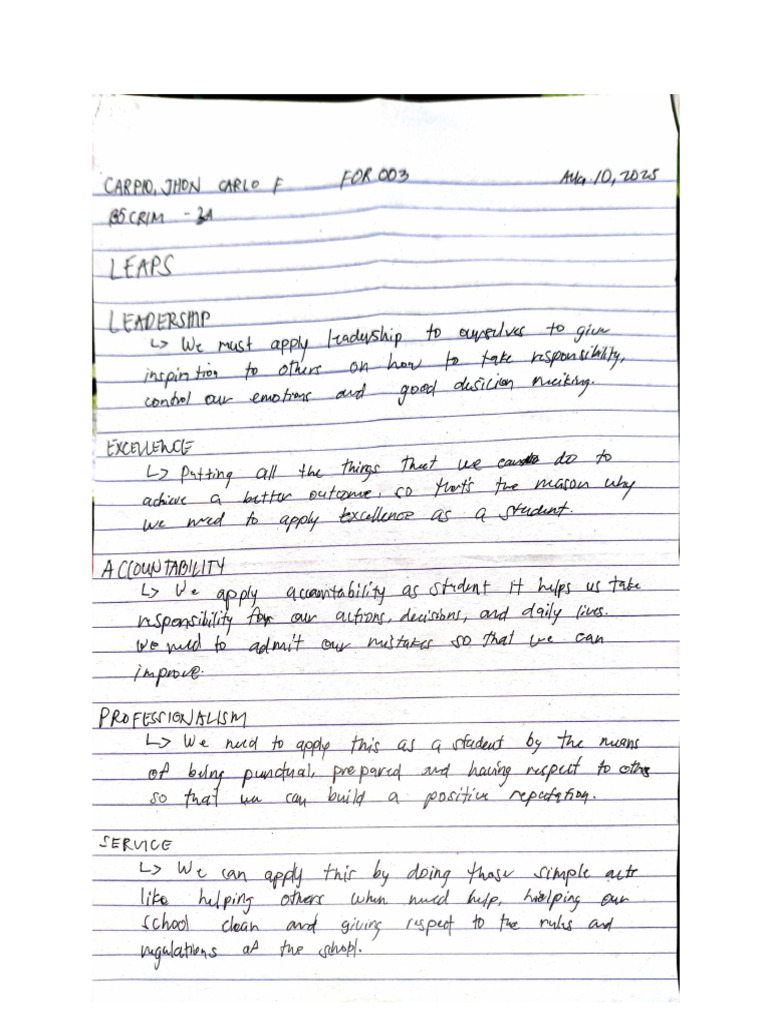 CARPIO, JHON CARLO F FOR 003 Aug. 10, 2025
BSCRIM - 3A
LEAPS
LEADERSHIP
↳ We must apply leadership to ourselves to give
inspiration to others on how to take responsibility,
control our emotions and good desicion making.
EXCELLENCE
↳ Putting all the things that we can do to
achieve a better outcome, so that's the reason why
we need to apply excellence as a student.
ACCOUNTABILITY
↳ We apply accountability as student it helps us take
responsibility for our actions, decisions, and daily lives.
We need to admit our mistakes so that we can
improve.
PROFESSIONALISM
↳ We need to apply this as a student by the means
of being punctual, prepared and having respect to others
so that we can build a positive reputation.
SERVICE
↳ We can apply this by doing those simple acts
like helping others when need help, helping our
school clean and giving respect to the rules and
regulations of the school.